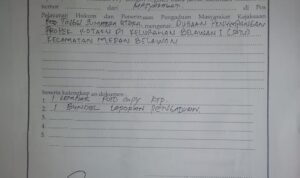 nomor dari Masyarakat di Pos
Pelayanan Hukum dan Penerimaan Pengaduan Masyarakat Kejaksaan
TINGGI SUMATERA UTARA, mengenai: DUGAAN PENYIMPANGAN
PROYEK KOTAKU DI KELURAHAN BELAWAN I (SATU)
KECAMATAN MEDAN BELAWAN
beserta kelengkapan dokumen
1. 1 LEMBAR FOTO COPY KTP.
2. 1 BUNDEL LAPORAN PENGADUAN.
3.
4.
5.